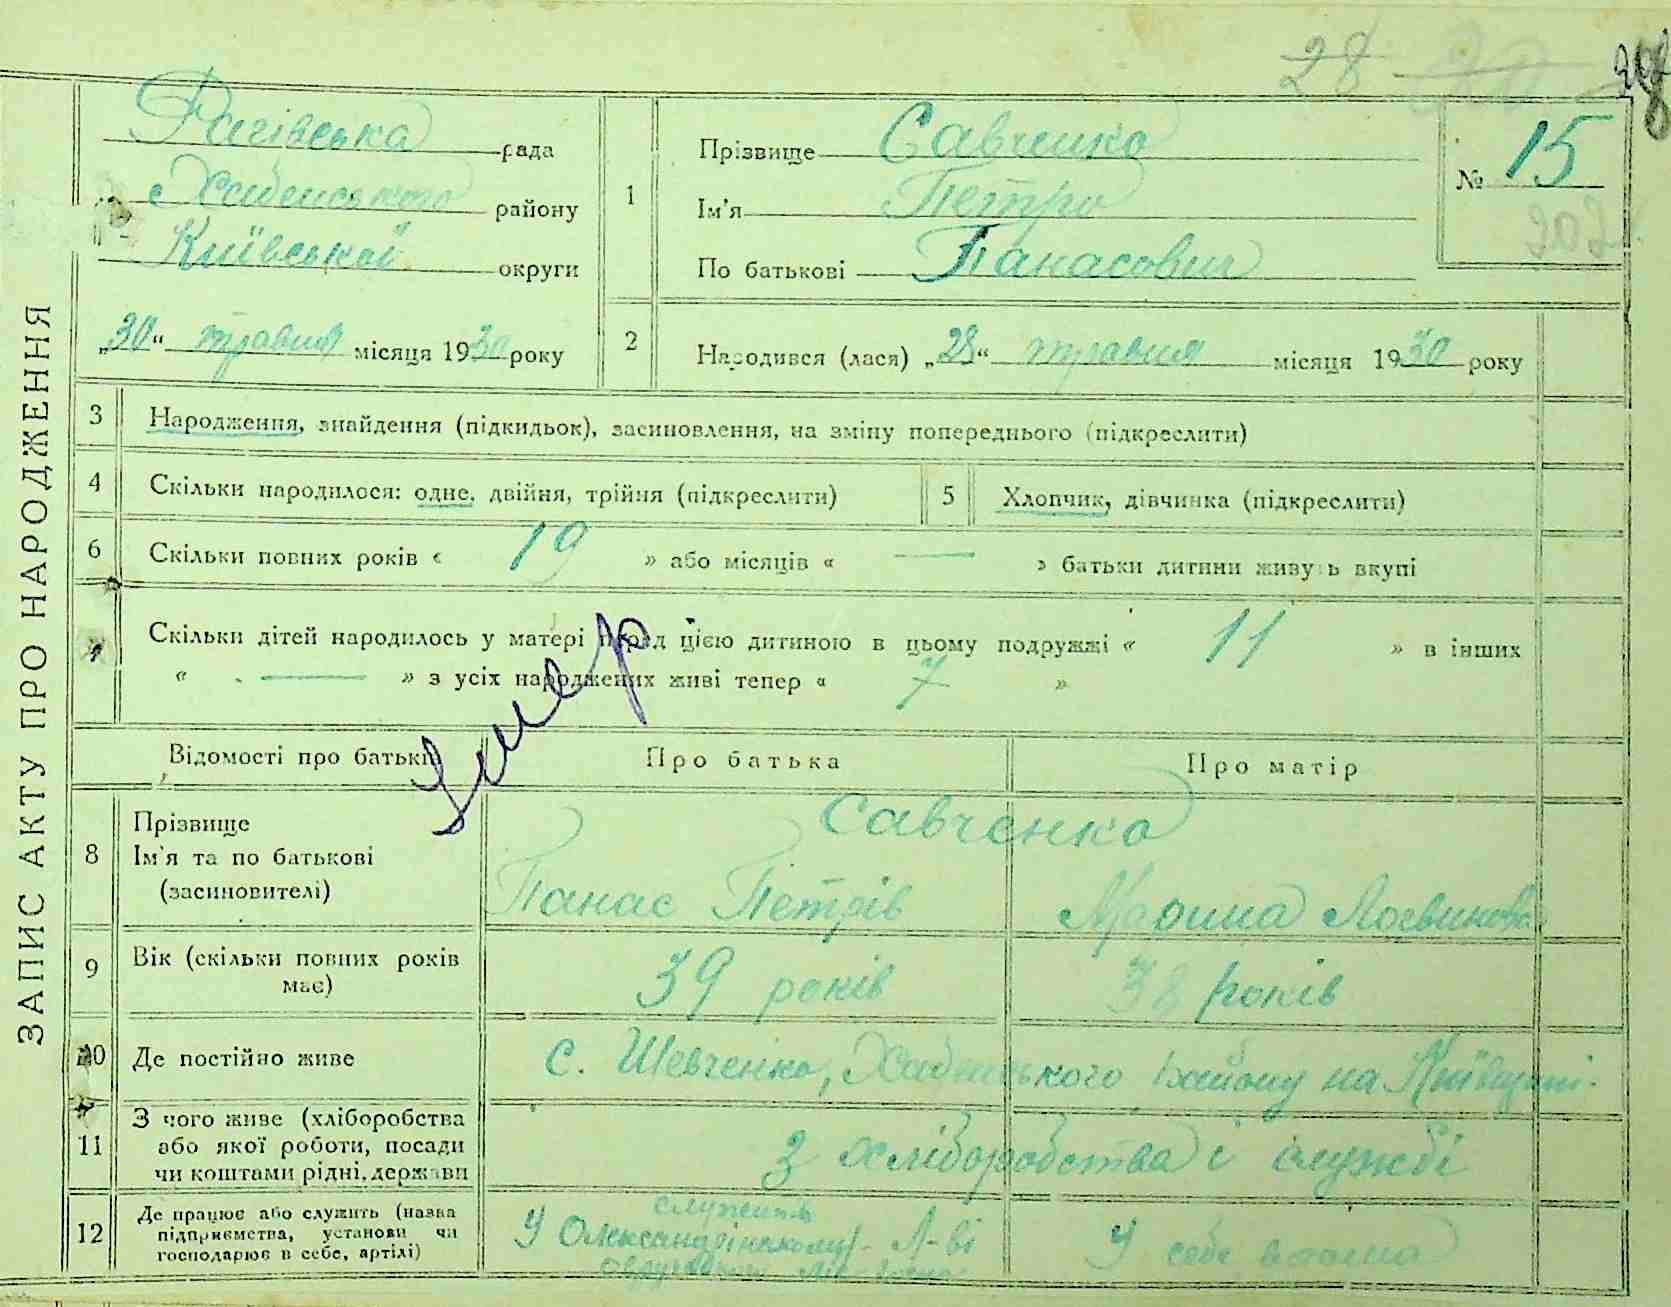 28 28
ЗАПИС АКТУ ПРО НАРОДЖЕННЯ
Рагівська рада
Хабенського району
Київської округи
„30“ травня місяця 1930 року
1
Прізвище Савченко
Ім'я Петро
По батькові Панасович
№ 15
2
Народився (лася) „28“ травня місяця 1930 року
3 Народження, знайдення (підкидьок), засиновлення, на зміну попереднього (підкреслити)
4 Скільки народилося: одне, двійня, трійня (підкреслити)
5 Хлопчик, дівчинка (підкреслити)
6 Скільки повних років « 19 » або місяців « — » батьки дитини живуть вкупі
7 Скільки дітей народилось у матері перед цією дитиною в цьому подружжі « 11 » в інших
« — » з усіх народжених живі тепер « 7 »
Умер
Відомості про батьків Про батька Про матір
8 Прізвище
Ім'я та по батькові
(засиновителі)
Савченко
Панас Петрів
Логвинова
9 Вік (скільки повних років
має)
39 років 38 років
10 Де постійно живе с. Шевченко, Хабенського району на Київщині.
11 З чого живе (хліборобства
або якої роботи, посади
чи коштами рідні, держави
З хліборобства і служби
12 Де працює або служить (назва
підприємства, установи чи
господарює в себе, артілі)
У Олександрінському Л-ві
У себе вдома